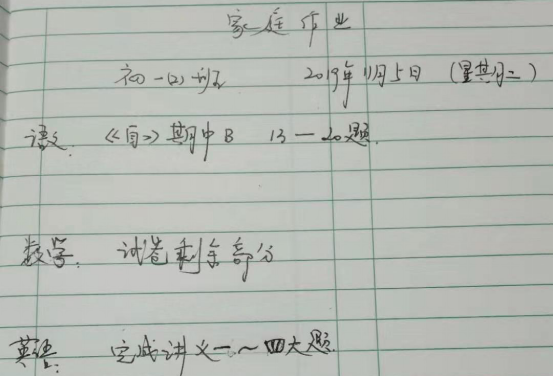 家庭作业
初一(2)班 2019年11月5日 (星期二)
语文: 《自》期中B 13—20题.
数学: 试卷剩余部分
英语: 完成讲义一~四大题.